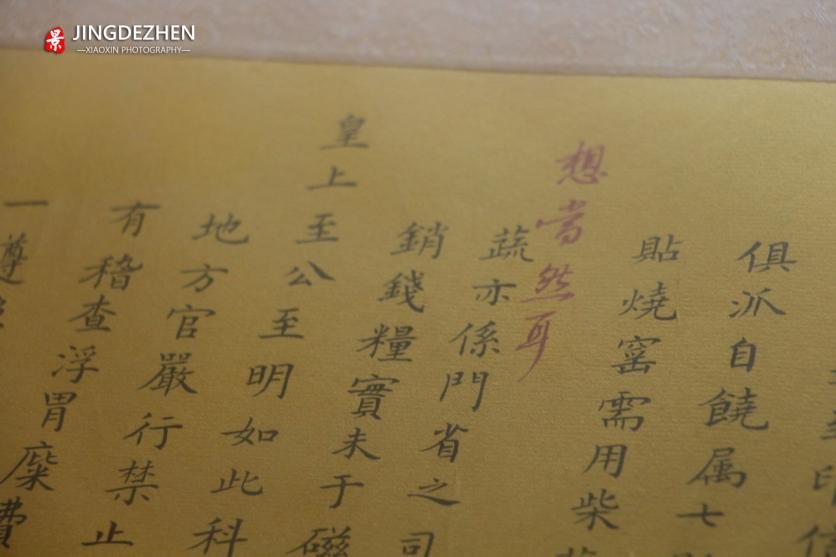 景 JINGDEZHEN
—XIAOXIN PHOTOGRAPHY—
俱派自饒属七
貼燒窑需用柴
想當然耳
蔬亦係門省之司
銷錢糧實未于磁
皇上至公至明如此科
地方官嚴行禁止
有稽查浮冒糜費
一遵